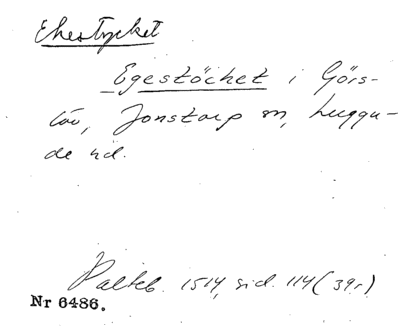 Ekestycket
Egestöchet i Görs-
löv, Jonstorp sn, Luggu-
de hd.
Palteb. 1514, sid. 114 (39r)
Nr 6486.